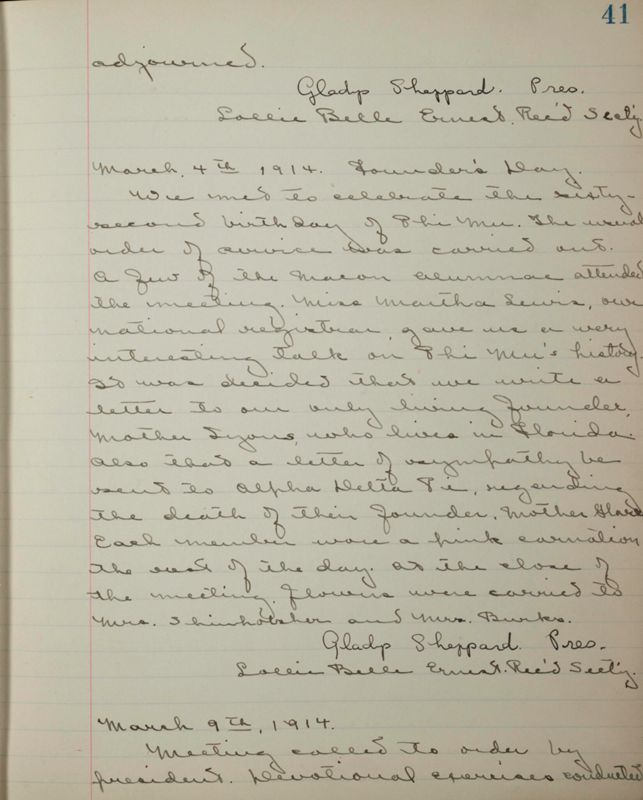 41
adjourned.
Gladys Sheppard. Pres.
Lollie Belle Ernest. Rec'd Sect'y
March, 4th 1914. Founder's Day.
We met to celebrate the sixty-
second birthday of Phi Mu. The usual
order of service was carried out.
A few of the Macon alumnae attended
the meeting. Miss Martha Lewis, our
national registrar gave us a very
interesting talk on Phi Mu's history.
It was decided that we write a
letter to our only living founder,
Mother Lyons, who lives in Florida.
Also that a letter of sympathy be
sent to Alpha Delta Pi, regarding
the death of their founder, Mother
Each member wore a pink carnation
the rest of the day. At the close of
the meeting, flowers were carried to
Mrs. Shinholsher and Mrs. Burks.
Gladys Sheppard. Pres.
Lollie Belle Ernest. Rec'd Sect'y.
March 9th, 1914.
Meeting called to order by
president. Devotional exercises conducted